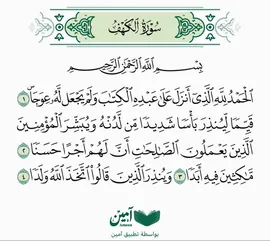 سُورَةُ الكَهْفِ
بِسْمِ اللَّهِ الرَّحْمَٰنِ الرَّحِيمِ
الْحَمْدُ لِلَّهِ الَّذِي أَنزَلَ عَلَىٰ عَبْدِهِ الْكِتَابَ وَلَمْ يَجْعَل لَّهُ عِوَجًا ١
قَيِّمًا لِّيُنذِرَ بَأْسًا شَدِيدًا مِّن لَّدُنْهُ وَيُبَشِّرَ الْمُؤْمِنِينَ
الَّذِينَ يَعْمَلُونَ الصَّالِحَاتِ أَنَّ لَهُمْ أَجْرًا حَسَنًا ٢
مَّاكِثِينَ فِيهِ أَبَدًا ٣ وَيُنذِرَ الَّذِينَ قَالُوا اتَّخَذَ اللَّهُ وَلَدًا ٤
آمين
Aameen
بواسطة تطبيق آمين